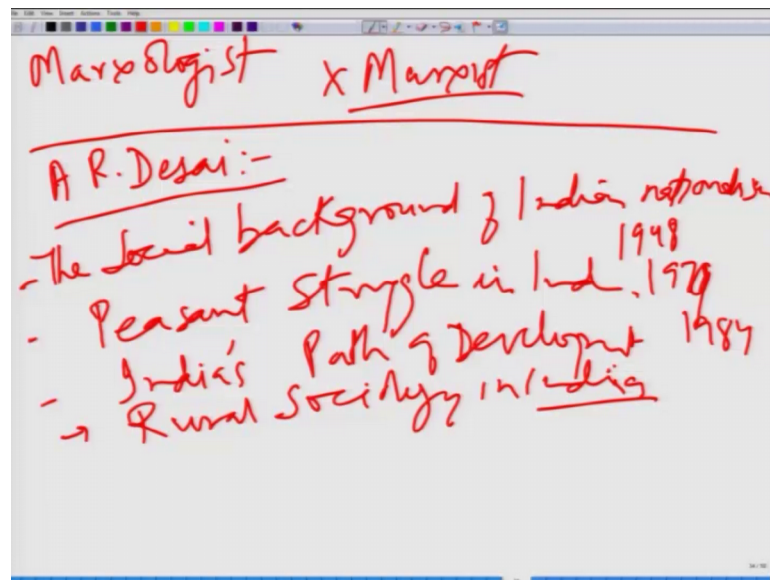 Marxologist x Marxist
A R. Desai:-
- The Social background of Indian nationalism
1948
- Peasant Struggle in Ind. 1979
- India's Path of Development 1984
→ Rural Sociology in India